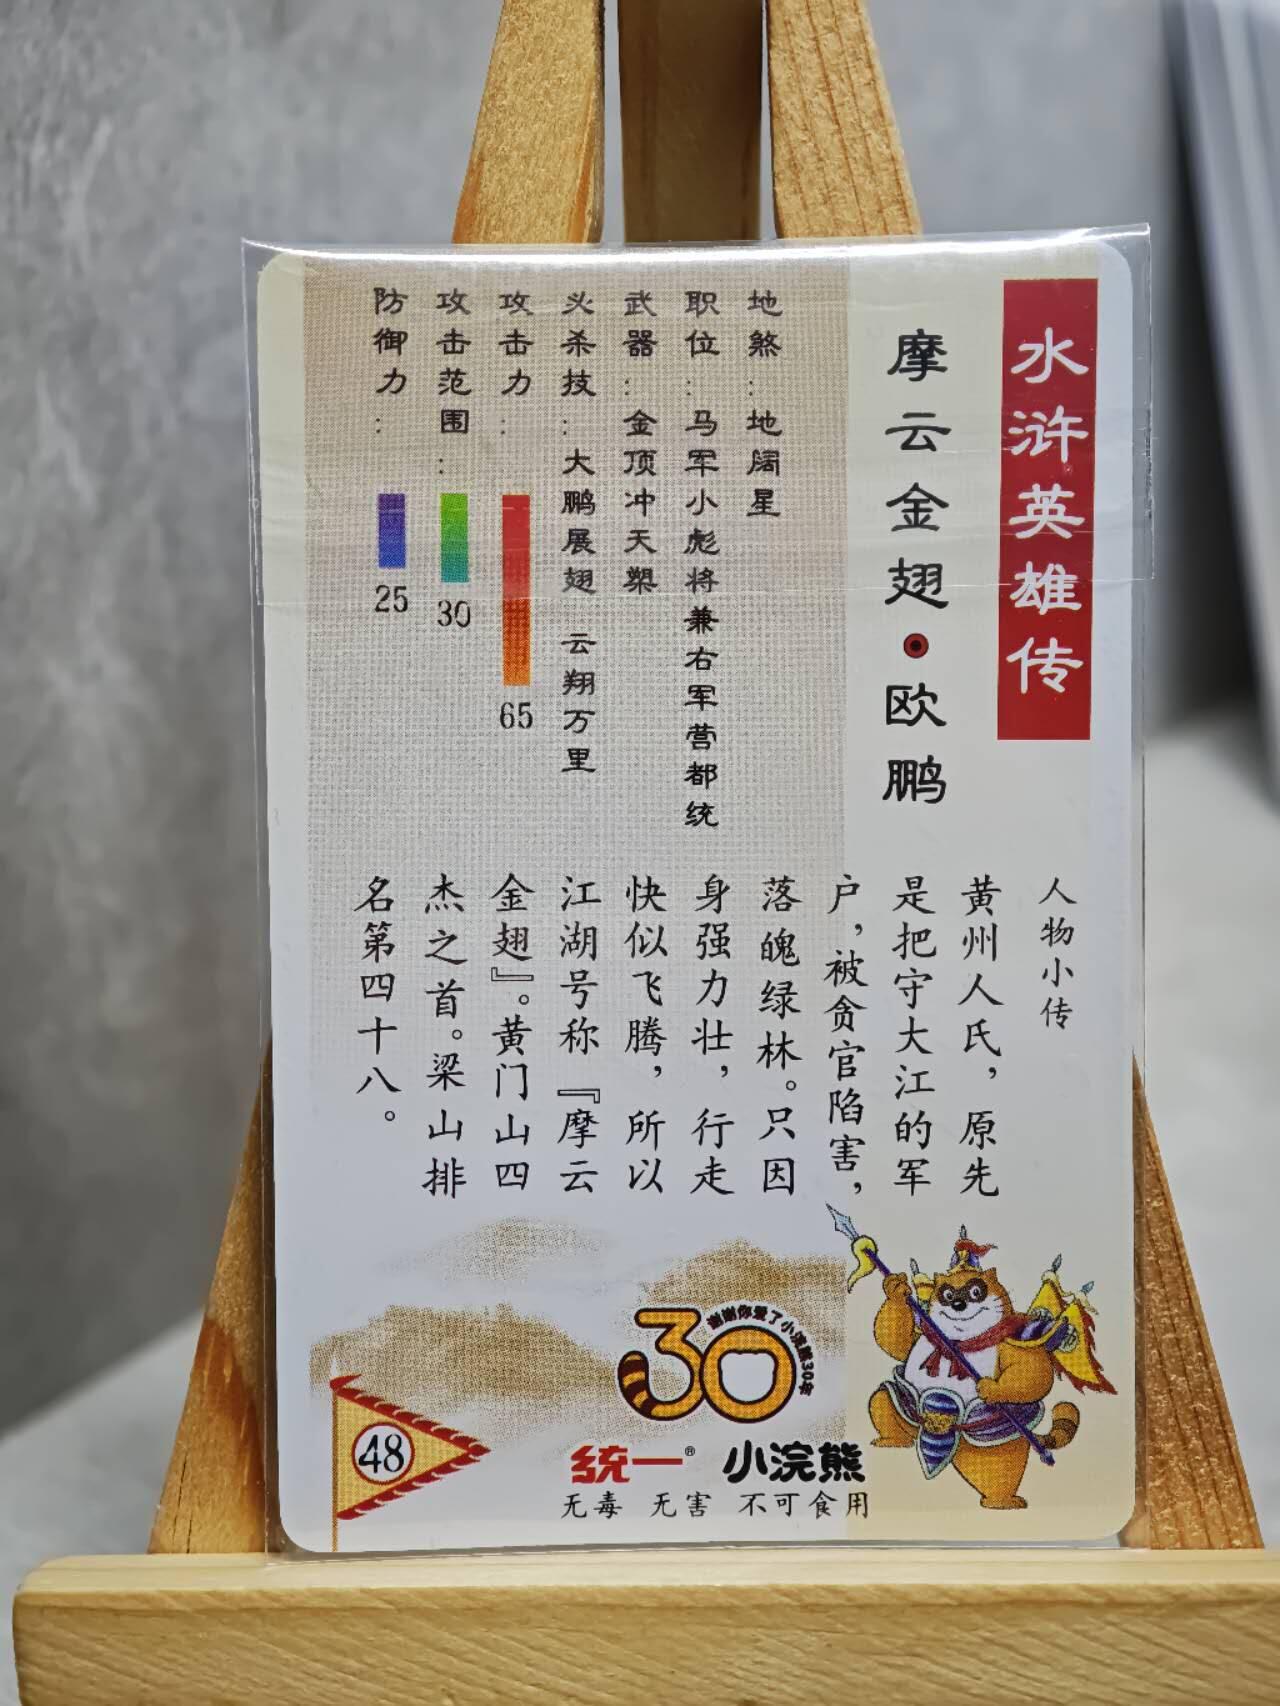 水浒英雄传
摩云金翅·欧鹏
地煞：地阔星
职位：马军小彪将兼右军营都统
武器：金顶冲天槊
必杀技：大鹏展翅 云翔万里
攻击力： 65
攻击范围： 30
防御力： 25
人物小传
黄州人氏，原先
是把守大江的军
户，被贪官陷害，
落魄绿林。只因
身强力壮，行走
快似飞腾，所以
江湖号称『摩云
金翅』。黄门山四
杰之首。梁山排
名第四十八。
30
谢谢你爱了小浣熊30年
48
统一® 小浣熊
无毒 无害 不可食用